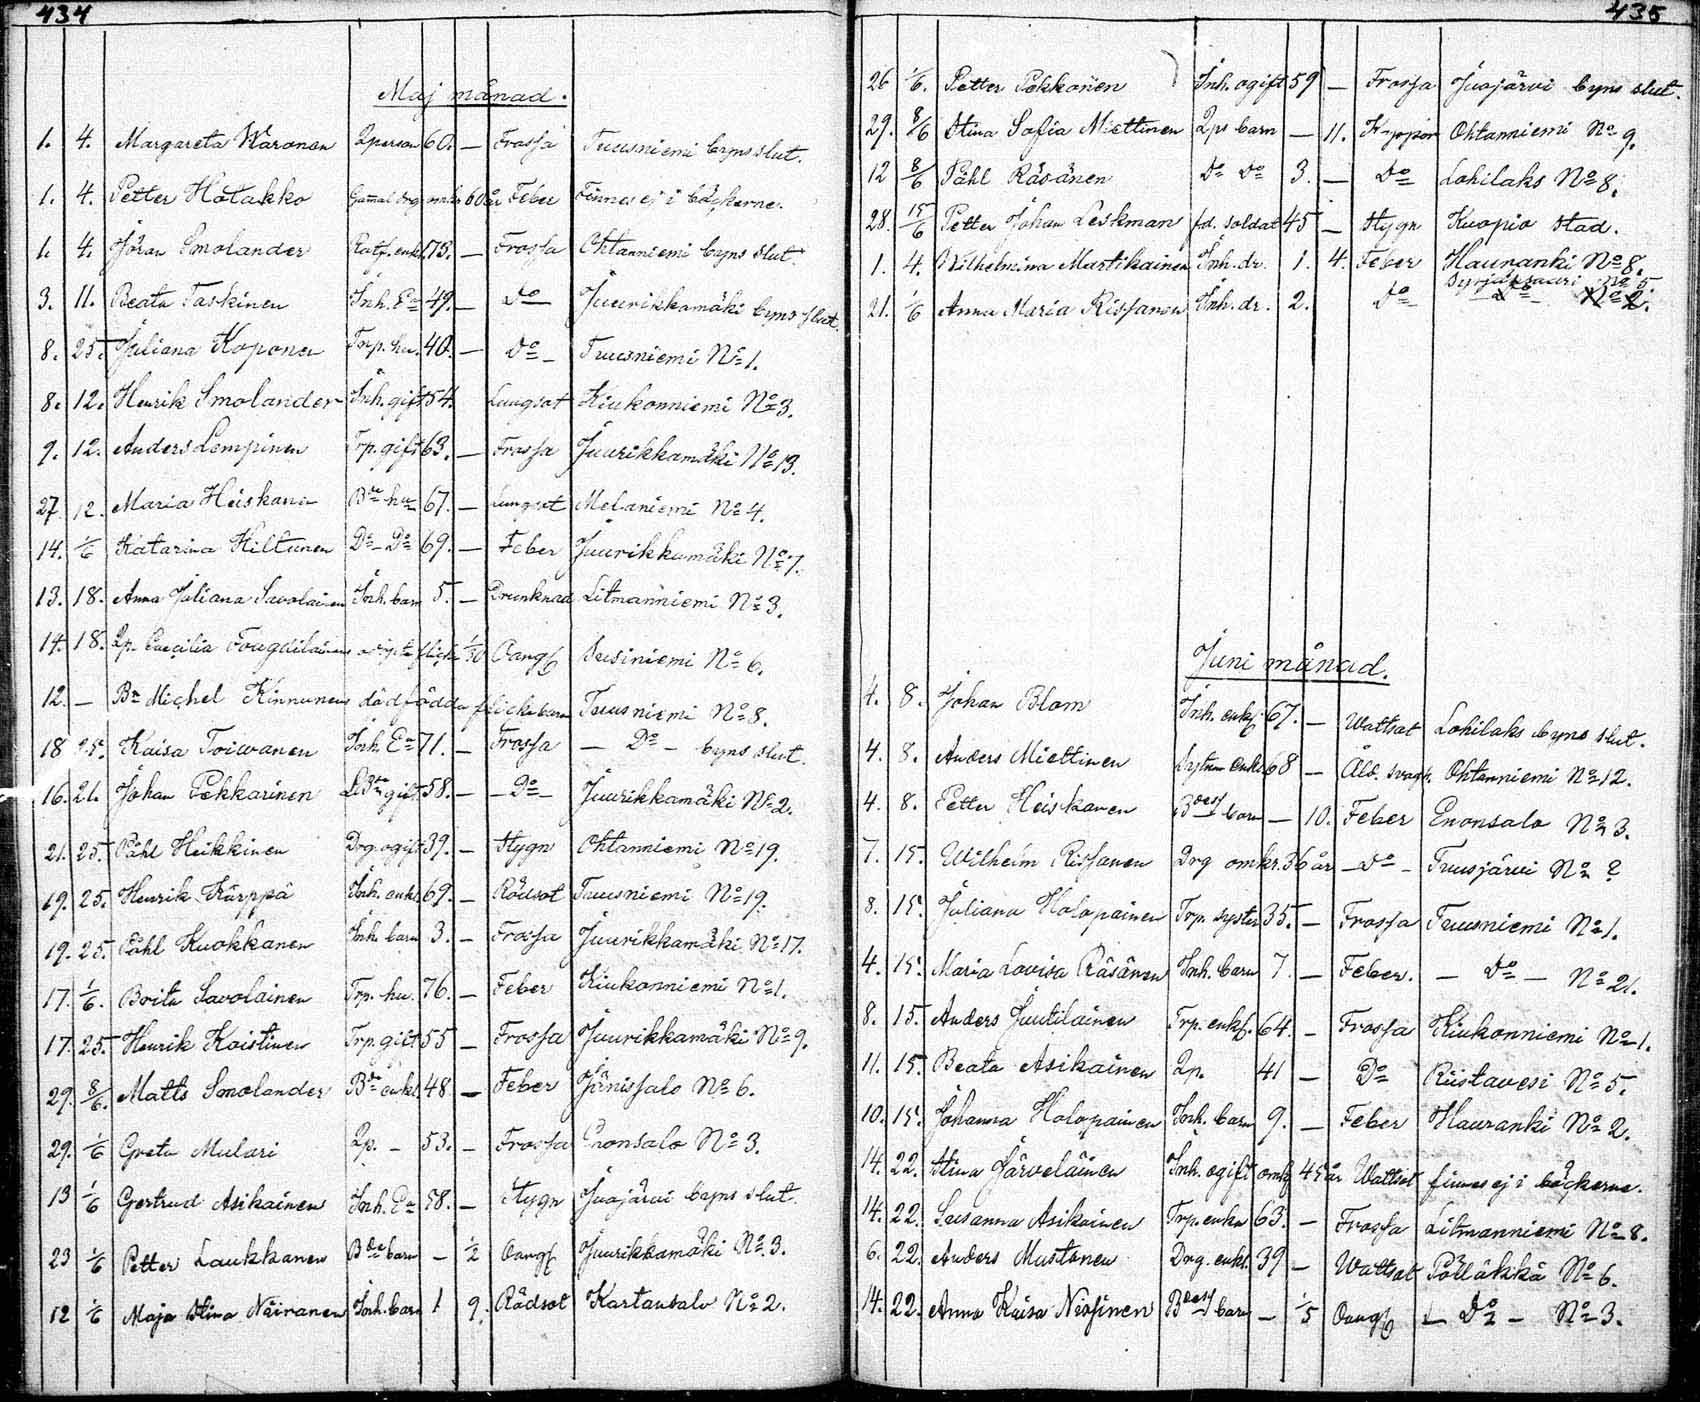 434
Maj månad.
1. 4. Margareta Waronen Qperson 60. — Frossa Tuusniemi byns slut.
1. 4. Petter Hatakko Gamal drg omkr 60 år Feber Finnes ej i böckerne.
1. 4. Jöran Smolander enkl. 75. — Frossa Ohtanniemi byns slut.
3. 11. Beata Taskinen Inh. Ea 49. — Do Juurikkamäki byns slut.
8. 25. Juliana Koponen Trp. hu. 40. — Do — Tuusniemi No 1.
8. 12. Henrik Smolander Inh. gift 54. Lungsot Kiukonniemi No 3.
9. 12. Anders Lempinen Trp. gift 63. — Frossa Juurikkamäki No 13.
27. 12. Maria Heiskanen Bde hu 67. — Lungsot Melaniemi No 4.
14. 1/6 Katarina Hiltunen Do — Do 69. — Feber Juurikkamäki No 7.
13. 18. Anna Juliana Savolainen Inh. barn 5. — Drunknad Litmanniemi No 3.
14. 18. Qp. Caecilia Fougdilainens oäkta flicka 1/30 Oangf Susiniemi No 6.
12. — Bn Michel Kinnunens dödfödda flickebarn Tuusniemi No 8.
18 25. Kaisa Toiwanen Inh. Ea 71. — Frossa — Do — byns slut.
16. 21. Johan Pekkarinen gift 58. — — Do — Juurikkamäki No 2.
21. 25. Påhl Heikkinen Drg. ogift 39. — Stygn Ohtanniemi No 19.
19. 25. Henrik Kärppä Inh. enkl. 69. — Rödsot Tuusniemi No 19.
19. 25. Påhl Kuokkanen Inh. barn 3. — Frossa Juurikkamäki No 17.
17. 1/6. Brita Savolainen Trp. hu. 76. — Feber Kiukonniemi No 1.
17. 25. Henrik Koistinen Trp. gift 55 — Frossa Juurikkamäki No 9.
29. 8/6. Matts Smolander Bde enkl 48 — Feber Jänissalo No 6.
29. 1/6 Greta Mulari Qp. — 53. — Frossa Enonsalo No 3.
13 1/6 Gertrud Asikainen Inh. Ea 58. — Stygn Juojärvi byns slut.
23 1/6 Petter Laukkanen Bde barn — 1/2 Oangf Juurikkamäki No 3.
12 1/6 Maja Stina Näiranen Inh. barn 1 9. Rödsot Kartansalo No 2.
435
26 1/6. Petter Pekkonen Inh. ogift 59 — Frossa Juojärvi byns slut.
29. 8/6 Stina Sofia Miettinen Qps barn — 11. Koppor Ohtanniemi No 9.
12 8/6 Påhl Räsänen Do Do 3. — Do Lohilaks No 8.
28. 15/6 Petter Johan Leskman fd. soldat 45 — Stygn Kuopio stad.
1. 4. Wilhelmina Martikainen Inh. dr. 1. 4. Feber Hauranki No 8.
No 5.
21. 1/6 Anna Maria Rissanen Inh. dr. 2. Do — Do — No 2.
Juni månad.
4. 8. Johan Blom Inh. enkf 67. — Wattsot Lohilaks byns slut.
4. 8. Anders Miettinen Sytnm enkl 68 — Åld. svagh. Ohtanniemi No 12.
4. 8. Petter Heiskanen barn — 10. Feber Enonsalo No 3.
7. 15. Wilhelm Rissanen Drg omkr. 36 år — Do — Tuusjärvi No ?
8. 15. Juliana Holopainen Trp. syster 35. — Frossa Tuusniemi No 1.
4. 15. Maria Lovisa Räsänen Inh. barn 7. — Feber. — Do — No 21.
8. 15. Anders Juutilainen Trp. enkf. 64. — Frossa Kiukonniemi No 1.
11. 15. Beata Asikainen Qp. 41 — Do Riistavesi No 5.
10. 15. Johanna Holopainen Inh. barn 9. — Feber Hauranki No 2.
14. 22. Stina Järveläinen Inh. ogift omkr 45 år Wattsot finnes ej i böckerne.
14. 22. Susanna Asikainen Trp. enka 63. — Frossa Litmanniemi No 8.
6. 22. Anders Mustonen Drg. enkl. 39 — Wattsot Pölläkkä No 6.
14. 22. Anna Kaisa Nissinen barn — 1/5 Oangf — Do — No 3.